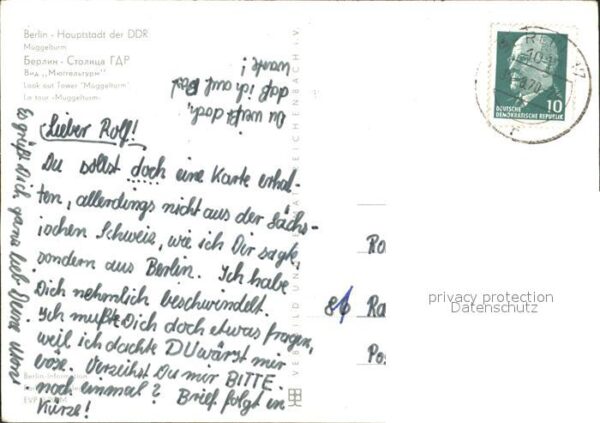 Berlin - Hauptstadt der DDR
Müggelturm
Берлин - Столица ГДР
Вид „Мюггельтурм"
Look out Tower "Müggelturm"
La tour «Müggelturm»
Du weißt doch,
daß ich auf Post
warte!
Lieber Rolf!
Du sollst doch eine Karte erhal-
ten, allerdings nicht aus der Sächs-
ischen Schweiz, wie ich Dir sagte,
sondern aus Berlin. Ich habe
Dich nehmlich beschwindelt.
Ich mußte Dich doch etwas fragen,
weil ich dachte DU wärst mir
böse. Verzeihst Du mir BITTE
noch einmal? Brief folgt in
Kürze!
Es grüßt Dich ganz lieb Deine
Berlin-Information
VEB BILD UND HEIMAT REICHENBACH i. V.
10
DEUTSCHE
DEMOKRATISCHE REPUBLIK
86
privacy protection
Datenschutz